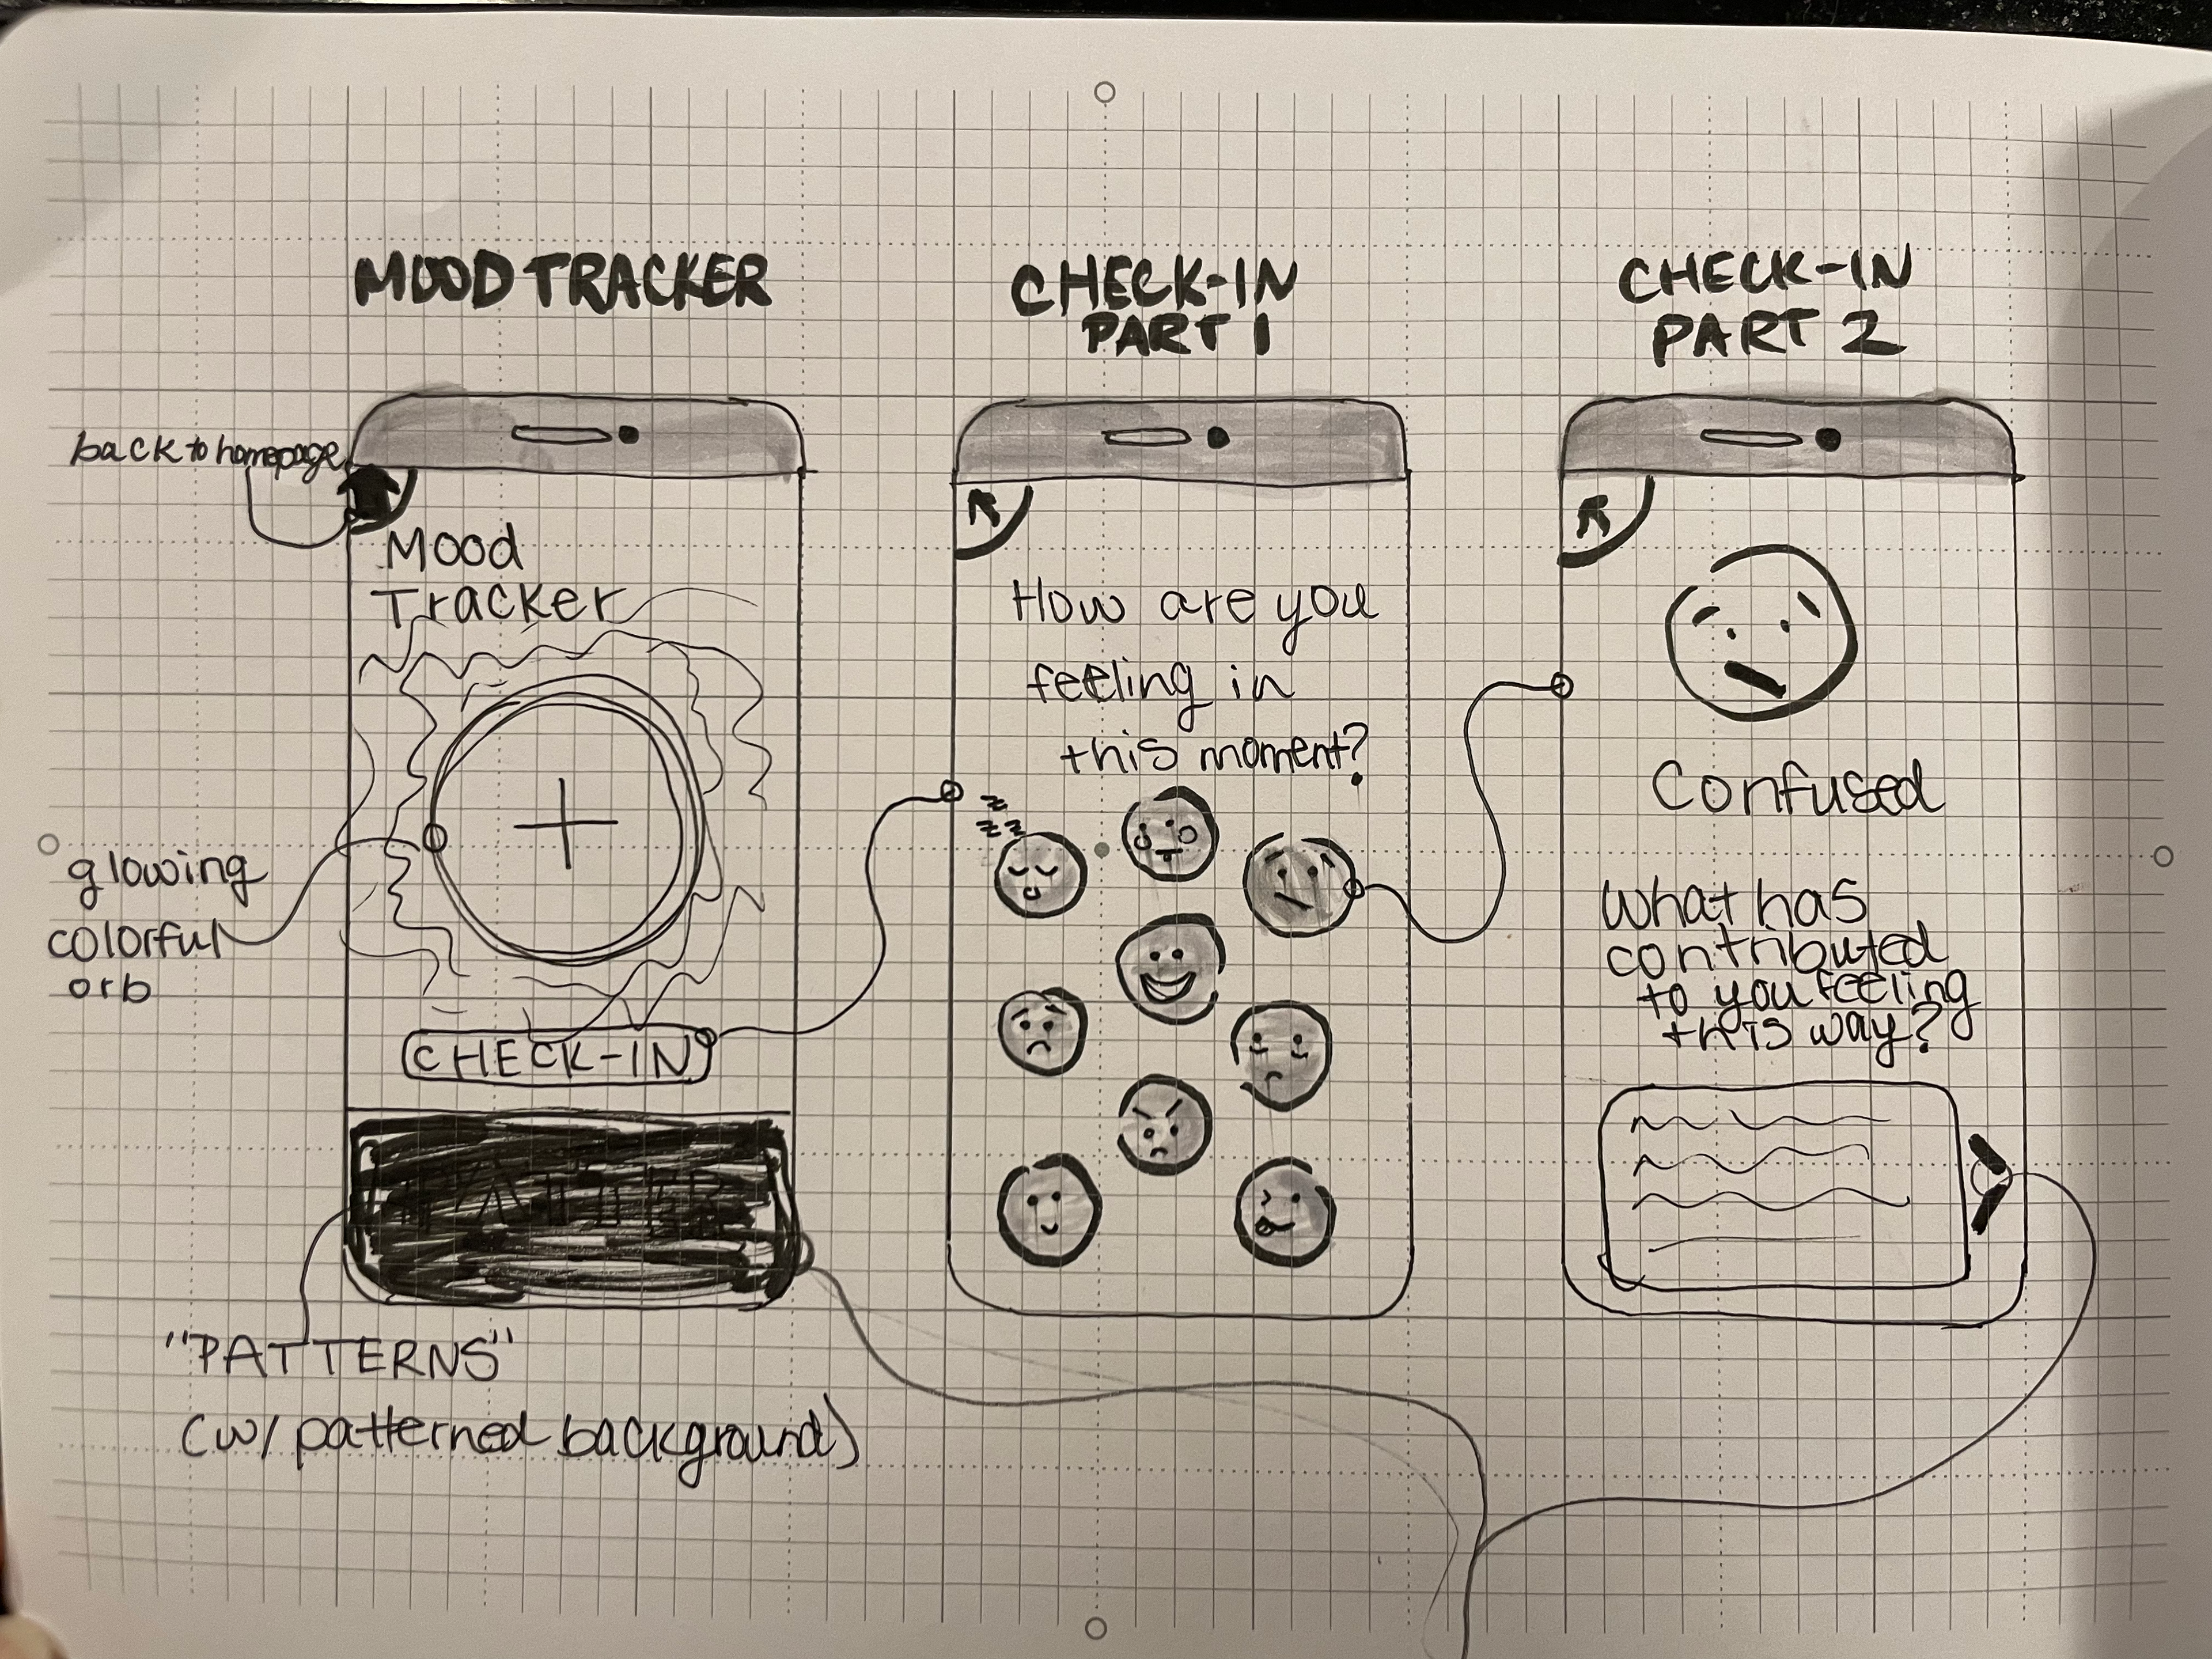 MOOD TRACKER
back to homepage
Mood
Tracker
glowing
colorful
orb
CHECK-IN
"PATTERNS"
(w/ patterned background)
CHECK-IN
PART 1
How are you
feeling in
this moment?
z
zz
CHECK-IN
PART 2
Confused
What has
contributed
to you feeling
this way?